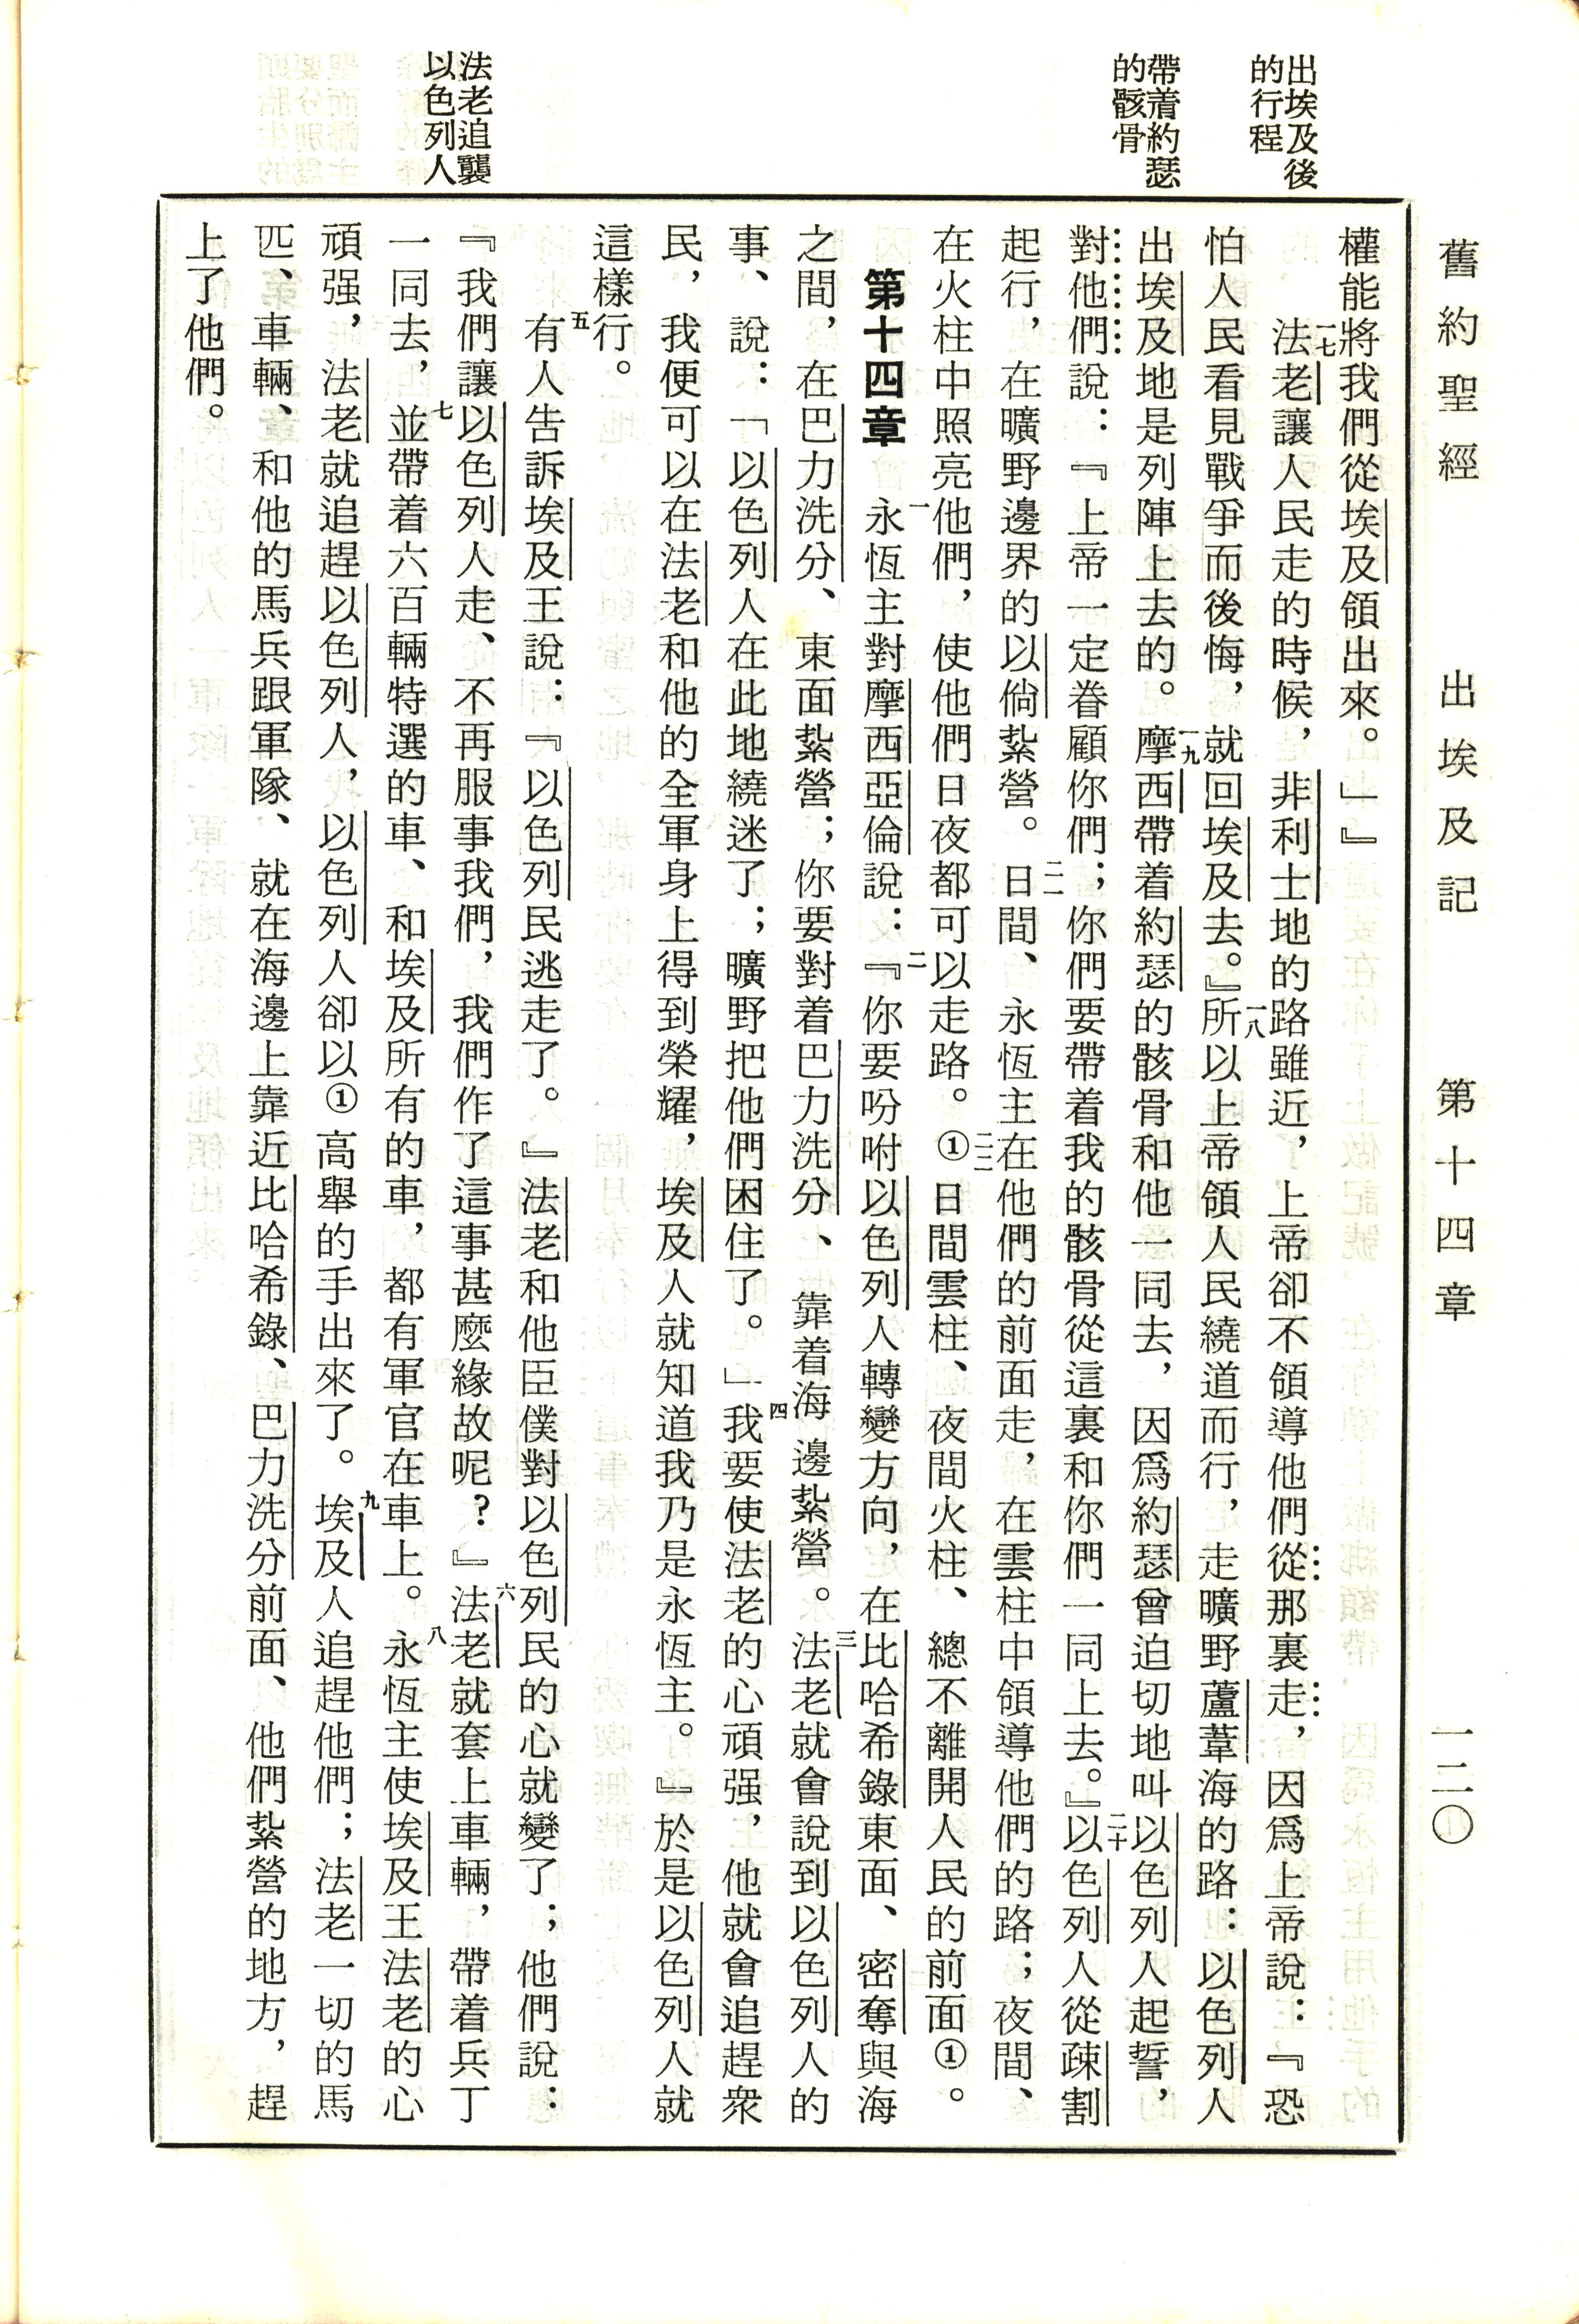 舊約聖經　出埃及記　第十四章　一二〇
出埃及後
的行程
帶着約瑟
的骸骨
法老追襲
以色列人
權能將我們從埃及領出來。」』
一七法老讓人民走的時候，非利士地的路雖近，上帝卻不領導他們從那裏走，因爲上帝說：『恐
怕人民看見戰爭而後悔，就回埃及去。』一八所以上帝領人民繞道而行，走曠野蘆葦海的路：以色列人
出埃及地是列陣上去的。一九摩西帶着約瑟的骸骨和他一同去，因爲約瑟曾迫切地叫以色列人起誓，
對他們說：『上帝一定眷顧你們；你們要帶着我的骸骨從這裏和你們一同上去。』二十以色列人從疎割
起行，在曠野邊界的以倘紮營。二一日間、永恆主在他們的前面走，在雲柱中領導他們的路；夜間、
在火柱中照亮他們，使他們日夜都可以走路。二二①日間雲柱、夜間火柱、總不離開人民的前面①。
第十四章　一永恆主對摩西亞倫說：二『你要吩咐以色列人轉變方向，在比哈希錄東面、密奪與海
之間，在巴力洗分、東面紮營；你要對着巴力洗分、靠着海邊紮營。三法老就會說到以色列人的
事、說：「以色列人在此地繞迷了；曠野把他們困住了。」四我要使法老的心頑强，他就會追趕衆
民，我便可以在法老和他的全軍身上得到榮耀，埃及人就知道我乃是永恆主。』於是以色列人就
這樣行。
五有人告訴埃及王說：『以色列民逃走了。』法老和他臣僕對以色列民的心就變了；他們說：
『我們讓以色列人走、不再服事我們，我們作了這事甚麼緣故呢？』六法老就套上車輛，帶着兵丁
一同去，七並帶着六百輛特選的車、和埃及所有的車，都有軍官在車上。八永恆主使埃及王法老的心
頑强，法老就追趕以色列人，以色列人卻以①高舉的手出來了。九埃及人追趕他們；法老一切的馬
匹、車輛、和他的馬兵跟軍隊、就在海邊上靠近比哈希錄、巴力洗分前面、他們紮營的地方，趕
上了他們。